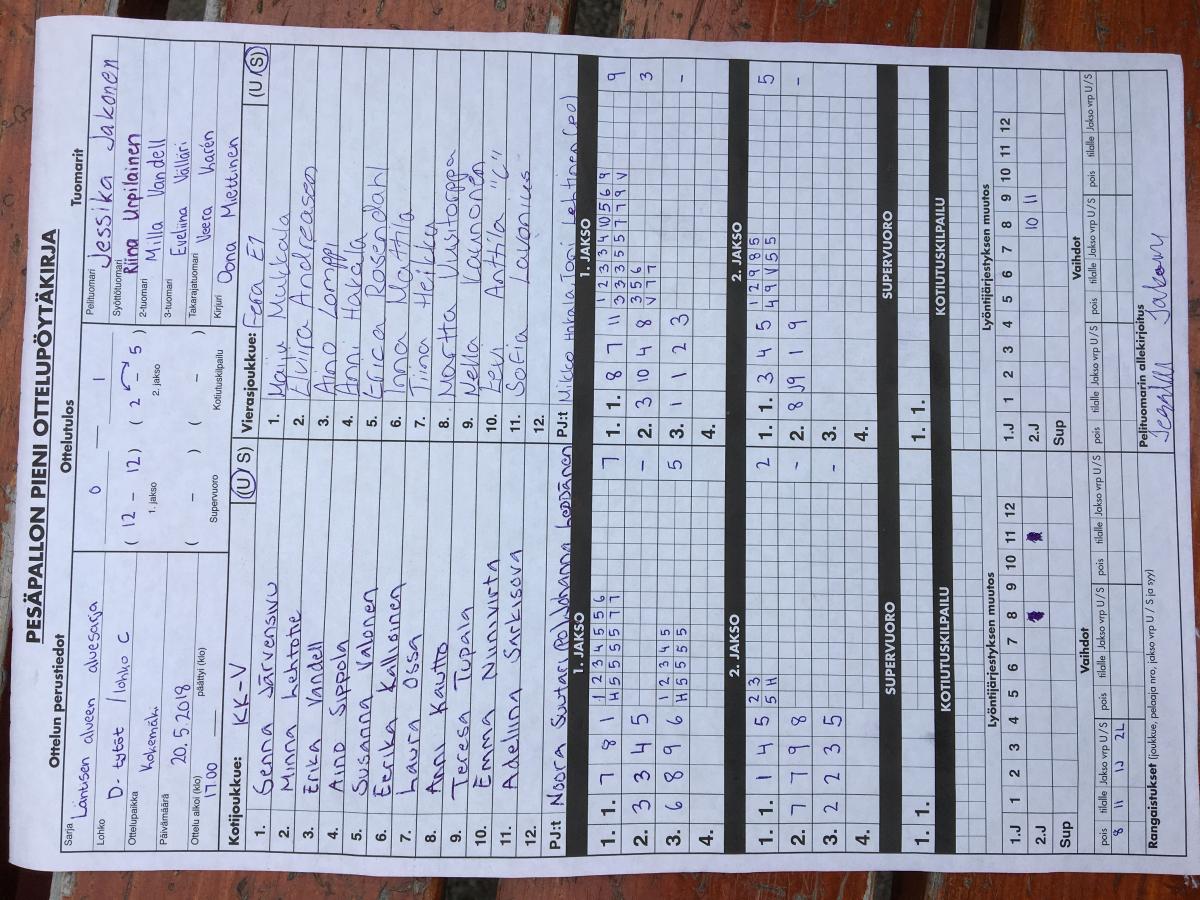 PESÄPALLON PIENI OTTELUPÖYTÄKIRJA
Ottelun perustiedot
Sarja Läntisen alueen aluesarja
Lohko D-tytöt / lohko C
Ottelupaikka Kokemäki
Päivämäärä 20.5.2018
Ottelu alkoi (klo) 17.00 päättyi (klo)
Ottelutulos
0 — 1
( 12 - 12 ) ( 2 - 5 )
1. jakso 2. jakso
( - ) ( - )
Supervuoro Kotiutuskilpailu
Tuomarit
Pelituomari Jessika Jakonen
Syöttötuomari Riina Urpilainen
2-tuomari Milla Vandell
3-tuomari Eveliina Välläri
Takarajatuomari Veera Karén
Kirjuri Oona Miettinen
Kotijoukkue: KK-V (U/S)
1. Senna Järvensivu
2. Minna Lehtotie
3. Erika Vandell
4. Aino Sippola
5. Susanna Valonen
6. Eerika Kallioinen
7. Laura Ossa
8. Anni Kautto
9. Teresa Tupala
10. Emma Niinivirta
11. Adelina Sarkisova
12.
PJ:t Noora Suutari (PO) Johanna Leppänen
Vierasjoukkue: Fera E1 (U/S)
1. Maiju Mukkala
2. Elviira Andreasen
3. Aino Lomppi
4. Anni Hakala
5. Erica Rosendahl
6. Inna Mattila
7. Tiina Heikka
8. Martta Uusitorppa
9. Nella Kaunonen
10. Eevi Anttila "C"
11. Sofia Lavonius
12.
PJ:t Mikko Huhtala Toni Lehtinen (PO)
1. JAKSO
1. 1. 7 8 1 1 2 3 4 5 5 6 7
H 5 5 5 5 7 7
2. 3 3 4 5 -
3. 6 8 9 6 1 2 3 4 5 5
H 5 5 5 5
4.
1. JAKSO
1. 1. 8 7 11 1 2 3 3 4 10 5 6 9 9
3 3 3 5 5 7 7 9 V
2. 3 10 4 8 3 5 6 3
V 7 7
3. 1 1 2 3 -
4.
2. JAKSO
1. 1. 1 4 5 2 3 2
5 H
2. 7 7 9 8 -
3. 2 2 3 5 -
4.
2. JAKSO
1. 1. 3 4 5 1 2 9 8 5 5
4 9 V 5 5
2. 8 9 1 9 -
3.
4.
SUPERVUORO
1. 1.
SUPERVUORO
1. 1.
KOTIUTUSKILPAILU
KOTIUTUSKILPAILU
Lyöntijärjestyksen muutos
1.J 1 2 3 4 5 6 7 8 9 10 11 12
2.J
Sup
Lyöntijärjestyksen muutos
1.J 1 2 3 4 5 6 7 8 9 10 11 12
2.J 10 11
Sup
Vaihdot
pois tilalle Jakso vrp U/S pois tilalle Jakso vrp U/S pois tilalle Jakso vrp U/S
8 11 1J 2L
Vaihdot
pois tilalle Jakso vrp U/S pois tilalle Jakso vrp U/S pois tilalle Jakso vrp U/S
Rangaistukset (joukkue, pelaaja nro, jakso vrp U / S ja syy)
Pelituomarin allekirjoitus